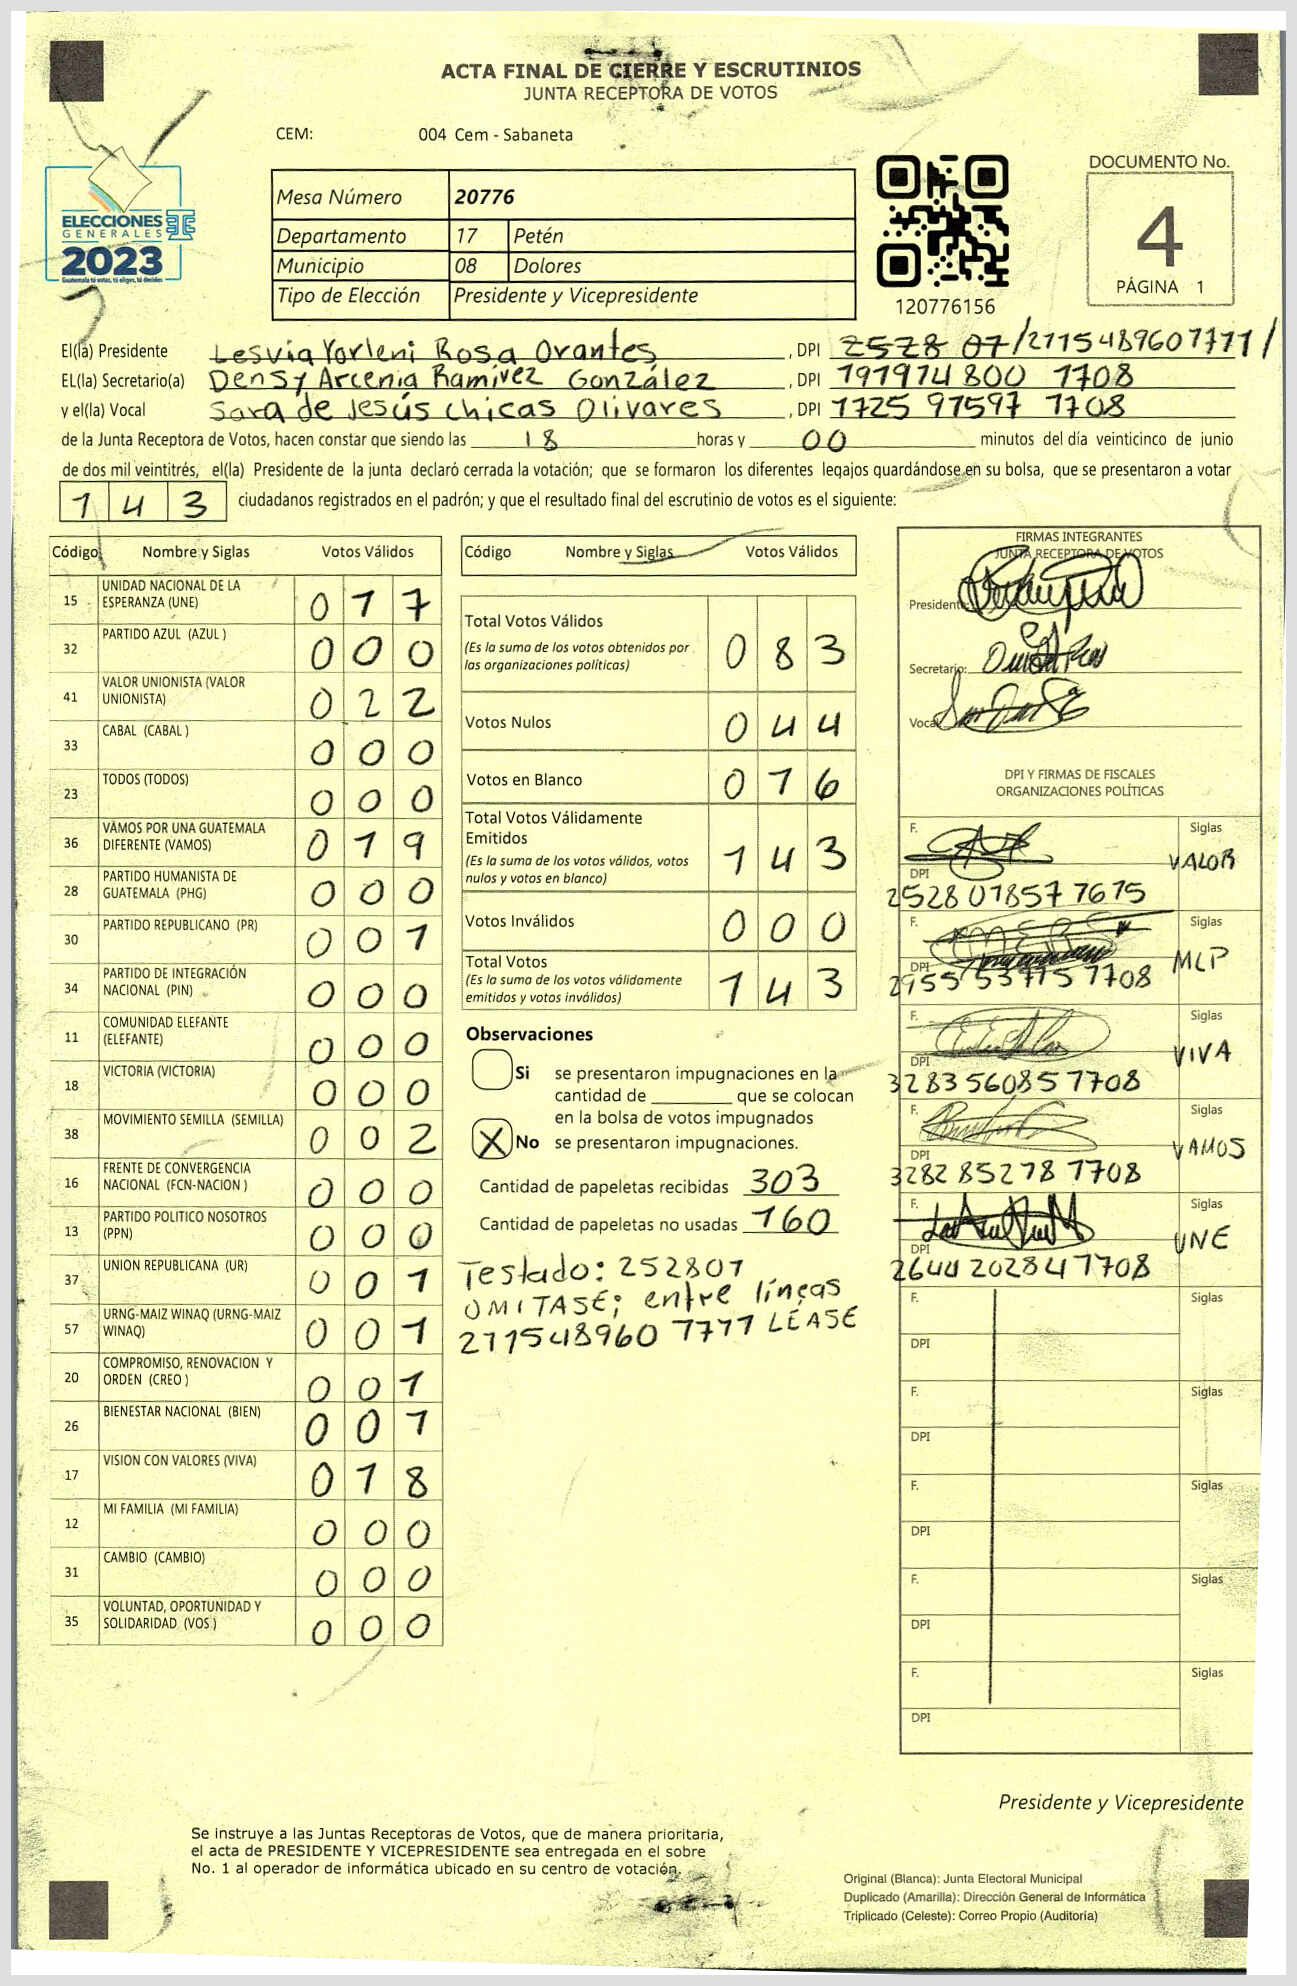 ACTA FINAL DE CIERRE Y ESCRUTINIOS
JUNTA RECEPTORA DE VOTOS
CEM: 004 Cem - Sabaneta
ELECCIONES
GENERALES
2023
Guatemala tú votas, tú eliges, tú decides
Mesa Número 20776
Departamento 17 Petén
Municipio 08 Dolores
Tipo de Elección Presidente y Vicepresidente
120776156
DOCUMENTO No.
4
PÁGINA 1
El(la) Presidente Lesvia Yorleni Rosa Orantes, DPI 2528 07/2115489607771/
EL(la) Secretario(a) Densy Arcenia Ramírez González, DPI 191914800 1708
y el(la) Vocal Sara de Jesús Chicas Olivares, DPI 1725 97597 1708
de la Junta Receptora de Votos, hacen constar que siendo las 18 horas y 00 minutos del día veinticinco de junio
de dos mil veintitrés, el(la) Presidente de la junta declaró cerrada la votación; que se formaron los diferentes legajos guardándose en su bolsa, que se presentaron a votar
143 ciudadanos registrados en el padrón; y que el resultado final del escrutinio de votos es el siguiente:
Código Nombre y Siglas Votos Válidos
15 UNIDAD NACIONAL DE LA ESPERANZA (UNE) 017
32 PARTIDO AZUL (AZUL ) 000
41 VALOR UNIONISTA (VALOR UNIONISTA) 022
33 CABAL (CABAL ) 000
23 TODOS (TODOS) 000
36 VAMOS POR UNA GUATEMALA DIFERENTE (VAMOS) 019
28 PARTIDO HUMANISTA DE GUATEMALA (PHG) 000
30 PARTIDO REPUBLICANO (PR) 001
34 PARTIDO DE INTEGRACIÓN NACIONAL (PIN) 000
11 COMUNIDAD ELEFANTE (ELEFANTE) 000
18 VICTORIA (VICTORIA) 000
38 MOVIMIENTO SEMILLA (SEMILLA) 002
16 FRENTE DE CONVERGENCIA NACIONAL (FCN-NACION ) 000
13 PARTIDO POLITICO NOSOTROS (PPN) 000
37 UNION REPUBLICANA (UR) 001
57 URNG-MAIZ WINAQ (URNG-MAIZ WINAQ) 001
20 COMPROMISO, RENOVACION Y ORDEN (CREO ) 001
26 BIENESTAR NACIONAL (BIEN) 001
17 VISION CON VALORES (VIVA) 018
12 MI FAMILIA (MI FAMILIA) 000
31 CAMBIO (CAMBIO) 000
35 VOLUNTAD, OPORTUNIDAD Y SOLIDARIDAD (VOS ) 000
Código Nombre y Siglas Votos Válidos
Total Votos Válidos 083
(Es la suma de los votos obtenidos por
las organizaciones políticas)
Votos Nulos 044
Votos en Blanco 016
Total Votos Válidamente
Emitidos 143
(Es la suma de los votos válidos, votos
nulos y votos en blanco)
Votos Inválidos 000
Total Votos 143
(Es la suma de los votos válidamente
emitidos y votos inválidos)
Observaciones
Si se presentaron impugnaciones en la
cantidad de ________ que se colocan
en la bolsa de votos impugnados
X No se presentaron impugnaciones.
Cantidad de papeletas recibidas 303
Cantidad de papeletas no usadas 160
Testado: 252801
OMITASE; entre líneas
211548960 7771 LÉASE
FIRMAS INTEGRANTES
JUNTA RECEPTORA DE VOTOS
Presidente:
Secretario:
Vocal
DPI Y FIRMAS DE FISCALES
ORGANIZACIONES POLÍTICAS
F. Siglas
VALOR
DPI
2528 01857 7615
F. Siglas
MLP
DPI
2955 53715 1708
F. Siglas
VIVA
DPI
3283560857708
F. Siglas
VAMOS
DPI
3282 85278 1708
F. Siglas
UNE
DPI
2644 20284 1708
F. Siglas
DPI
F. Siglas
DPI
F. Siglas
DPI
F. Siglas
DPI
F. Siglas
DPI
Presidente y Vicepresidente
Se instruye a las Juntas Receptoras de Votos, que de manera prioritaria,
el acta de PRESIDENTE Y VICEPRESIDENTE sea entregada en el sobre
No. 1 al operador de informática ubicado en su centro de votación.
Original (Blanca): Junta Electoral Municipal
Duplicado (Amarilla): Dirección General de Informática
Triplicado (Celeste): Correo Propio (Auditoría)